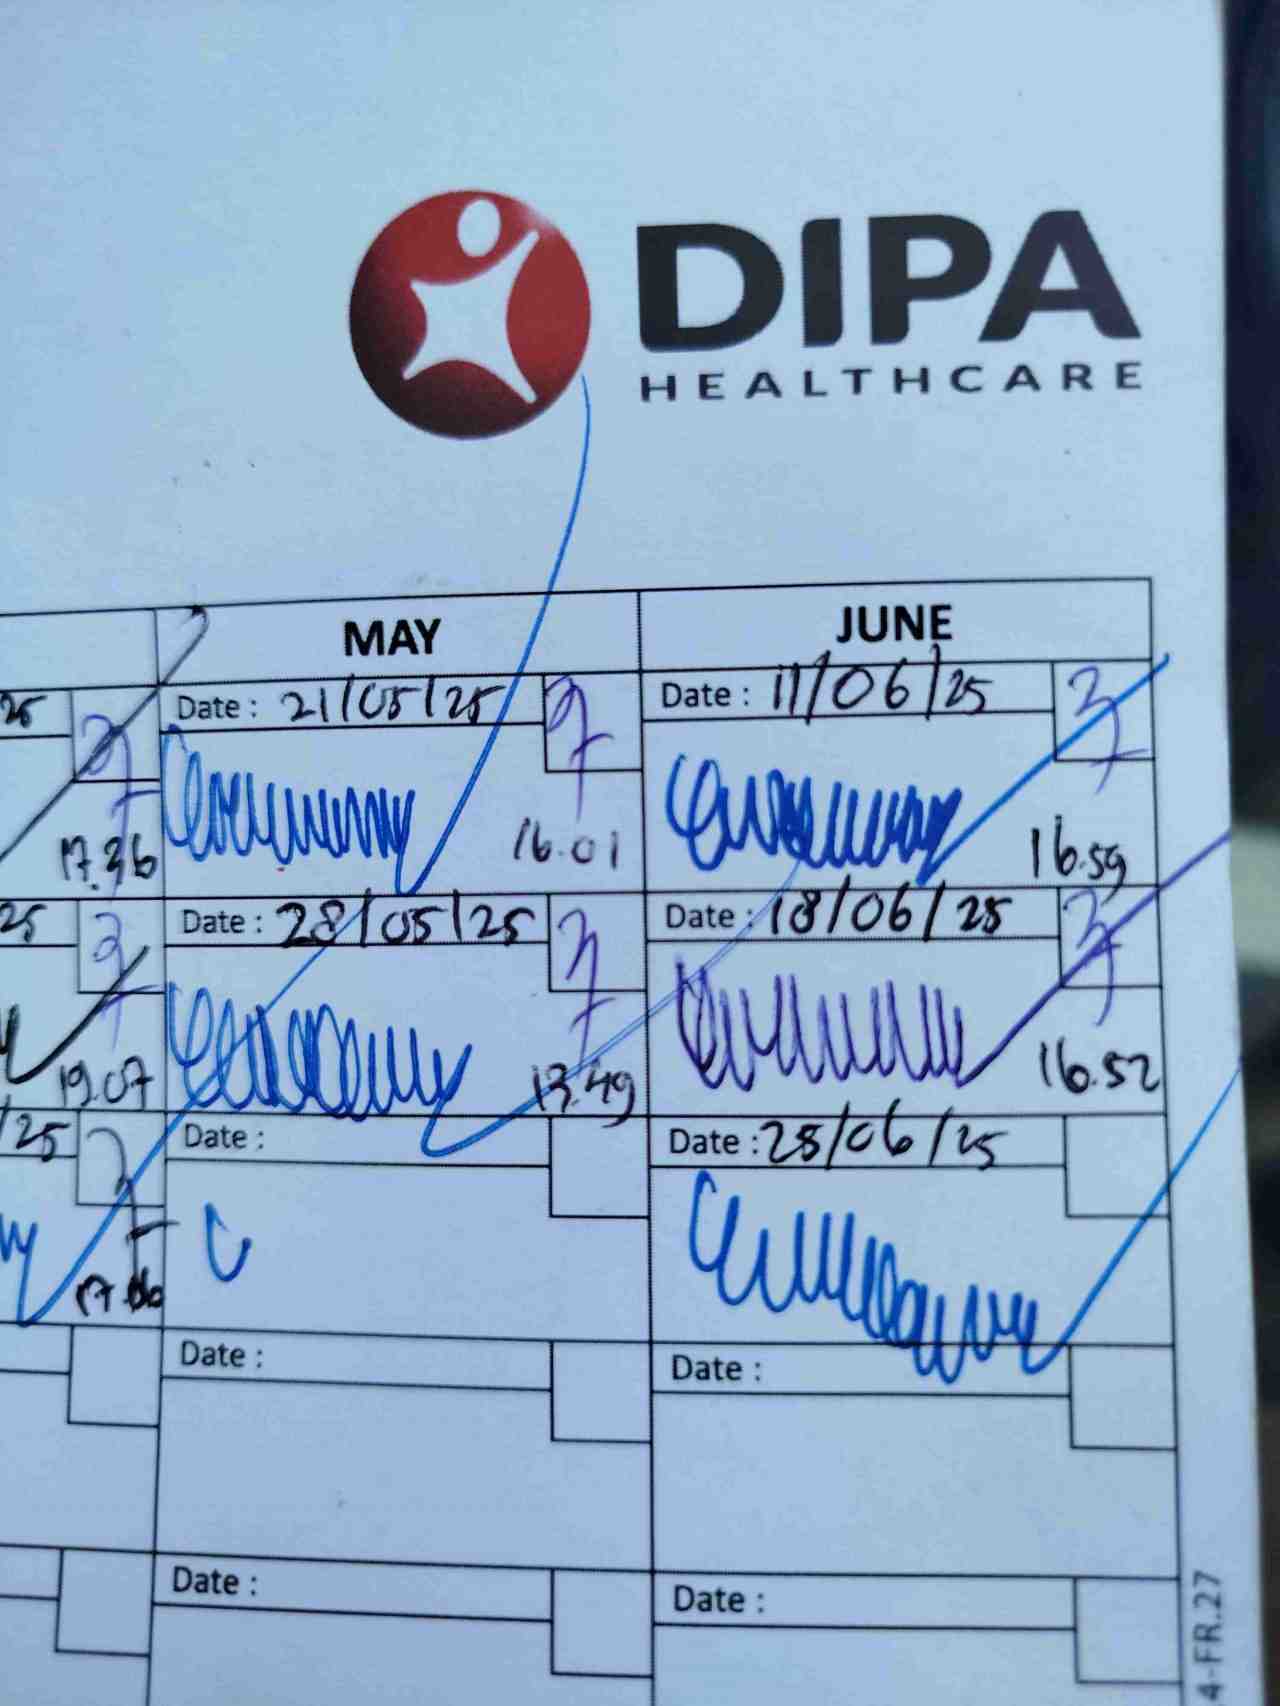 DIPA
HEALTHCARE
MAY JUNE
25 Date : 21/05/25 Date : 11/06/25
17.36 16.01 16.59
25 Date : 28/05/25 Date : 18/06/25
19.07 13.49 16.52
/25 Date : Date : 25/06/25
17.06
Date : Date :
Date : Date :
4-FR.27